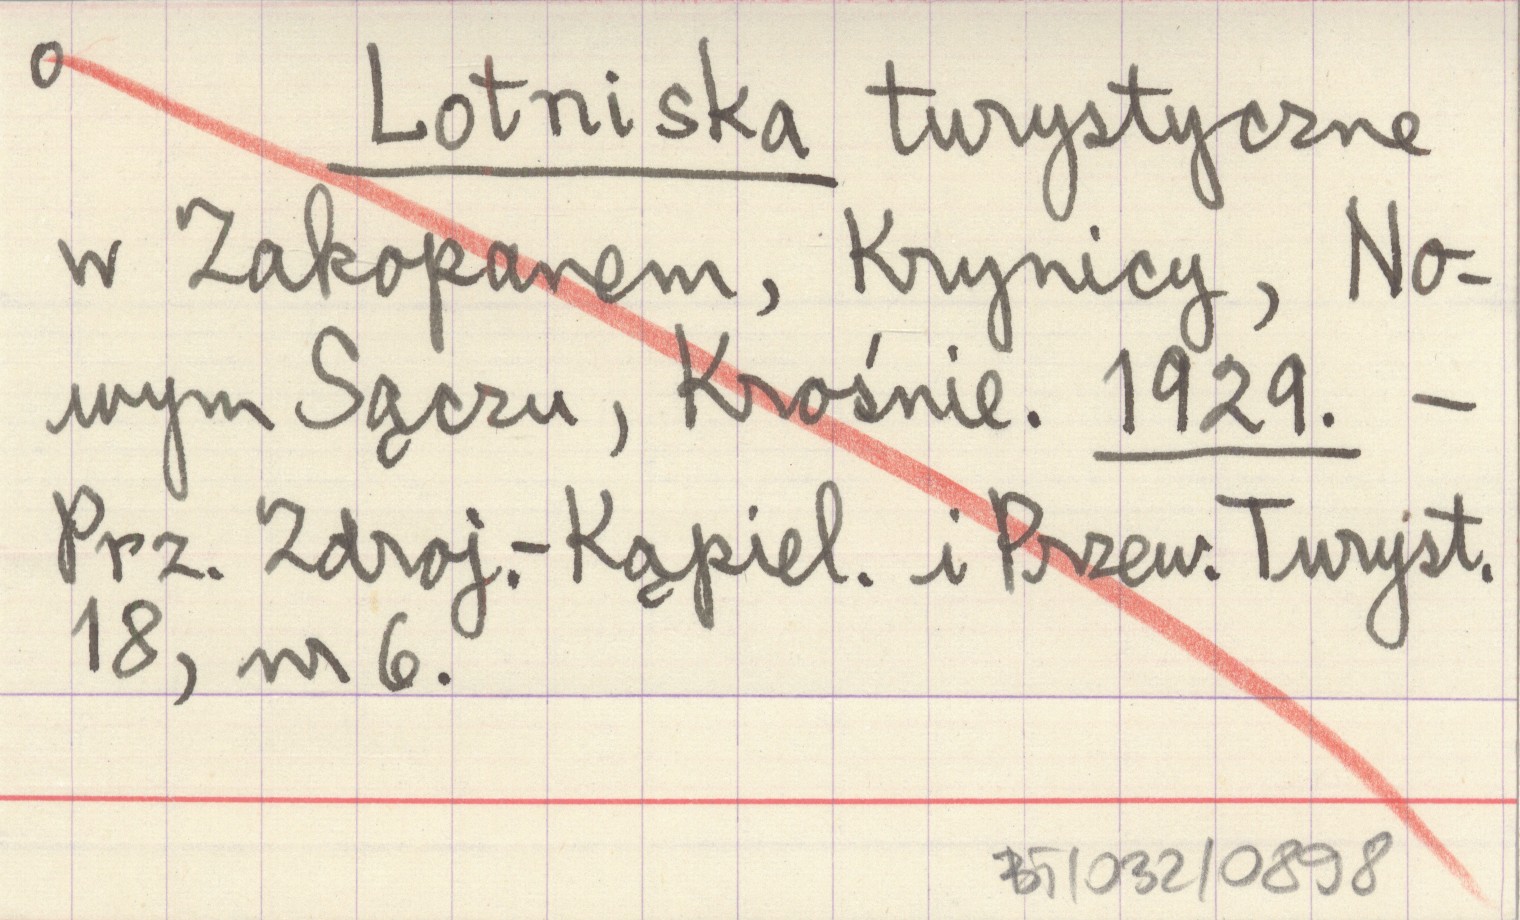 o Lotniska turystyczne
w Zakopanem, Krynicy, No-
wym Sączu, Krośnie. 1929. –
Prz. Zdroj.-Kąpiel. i Przew. Turyst.
18, nr 6.
BT/032/0898